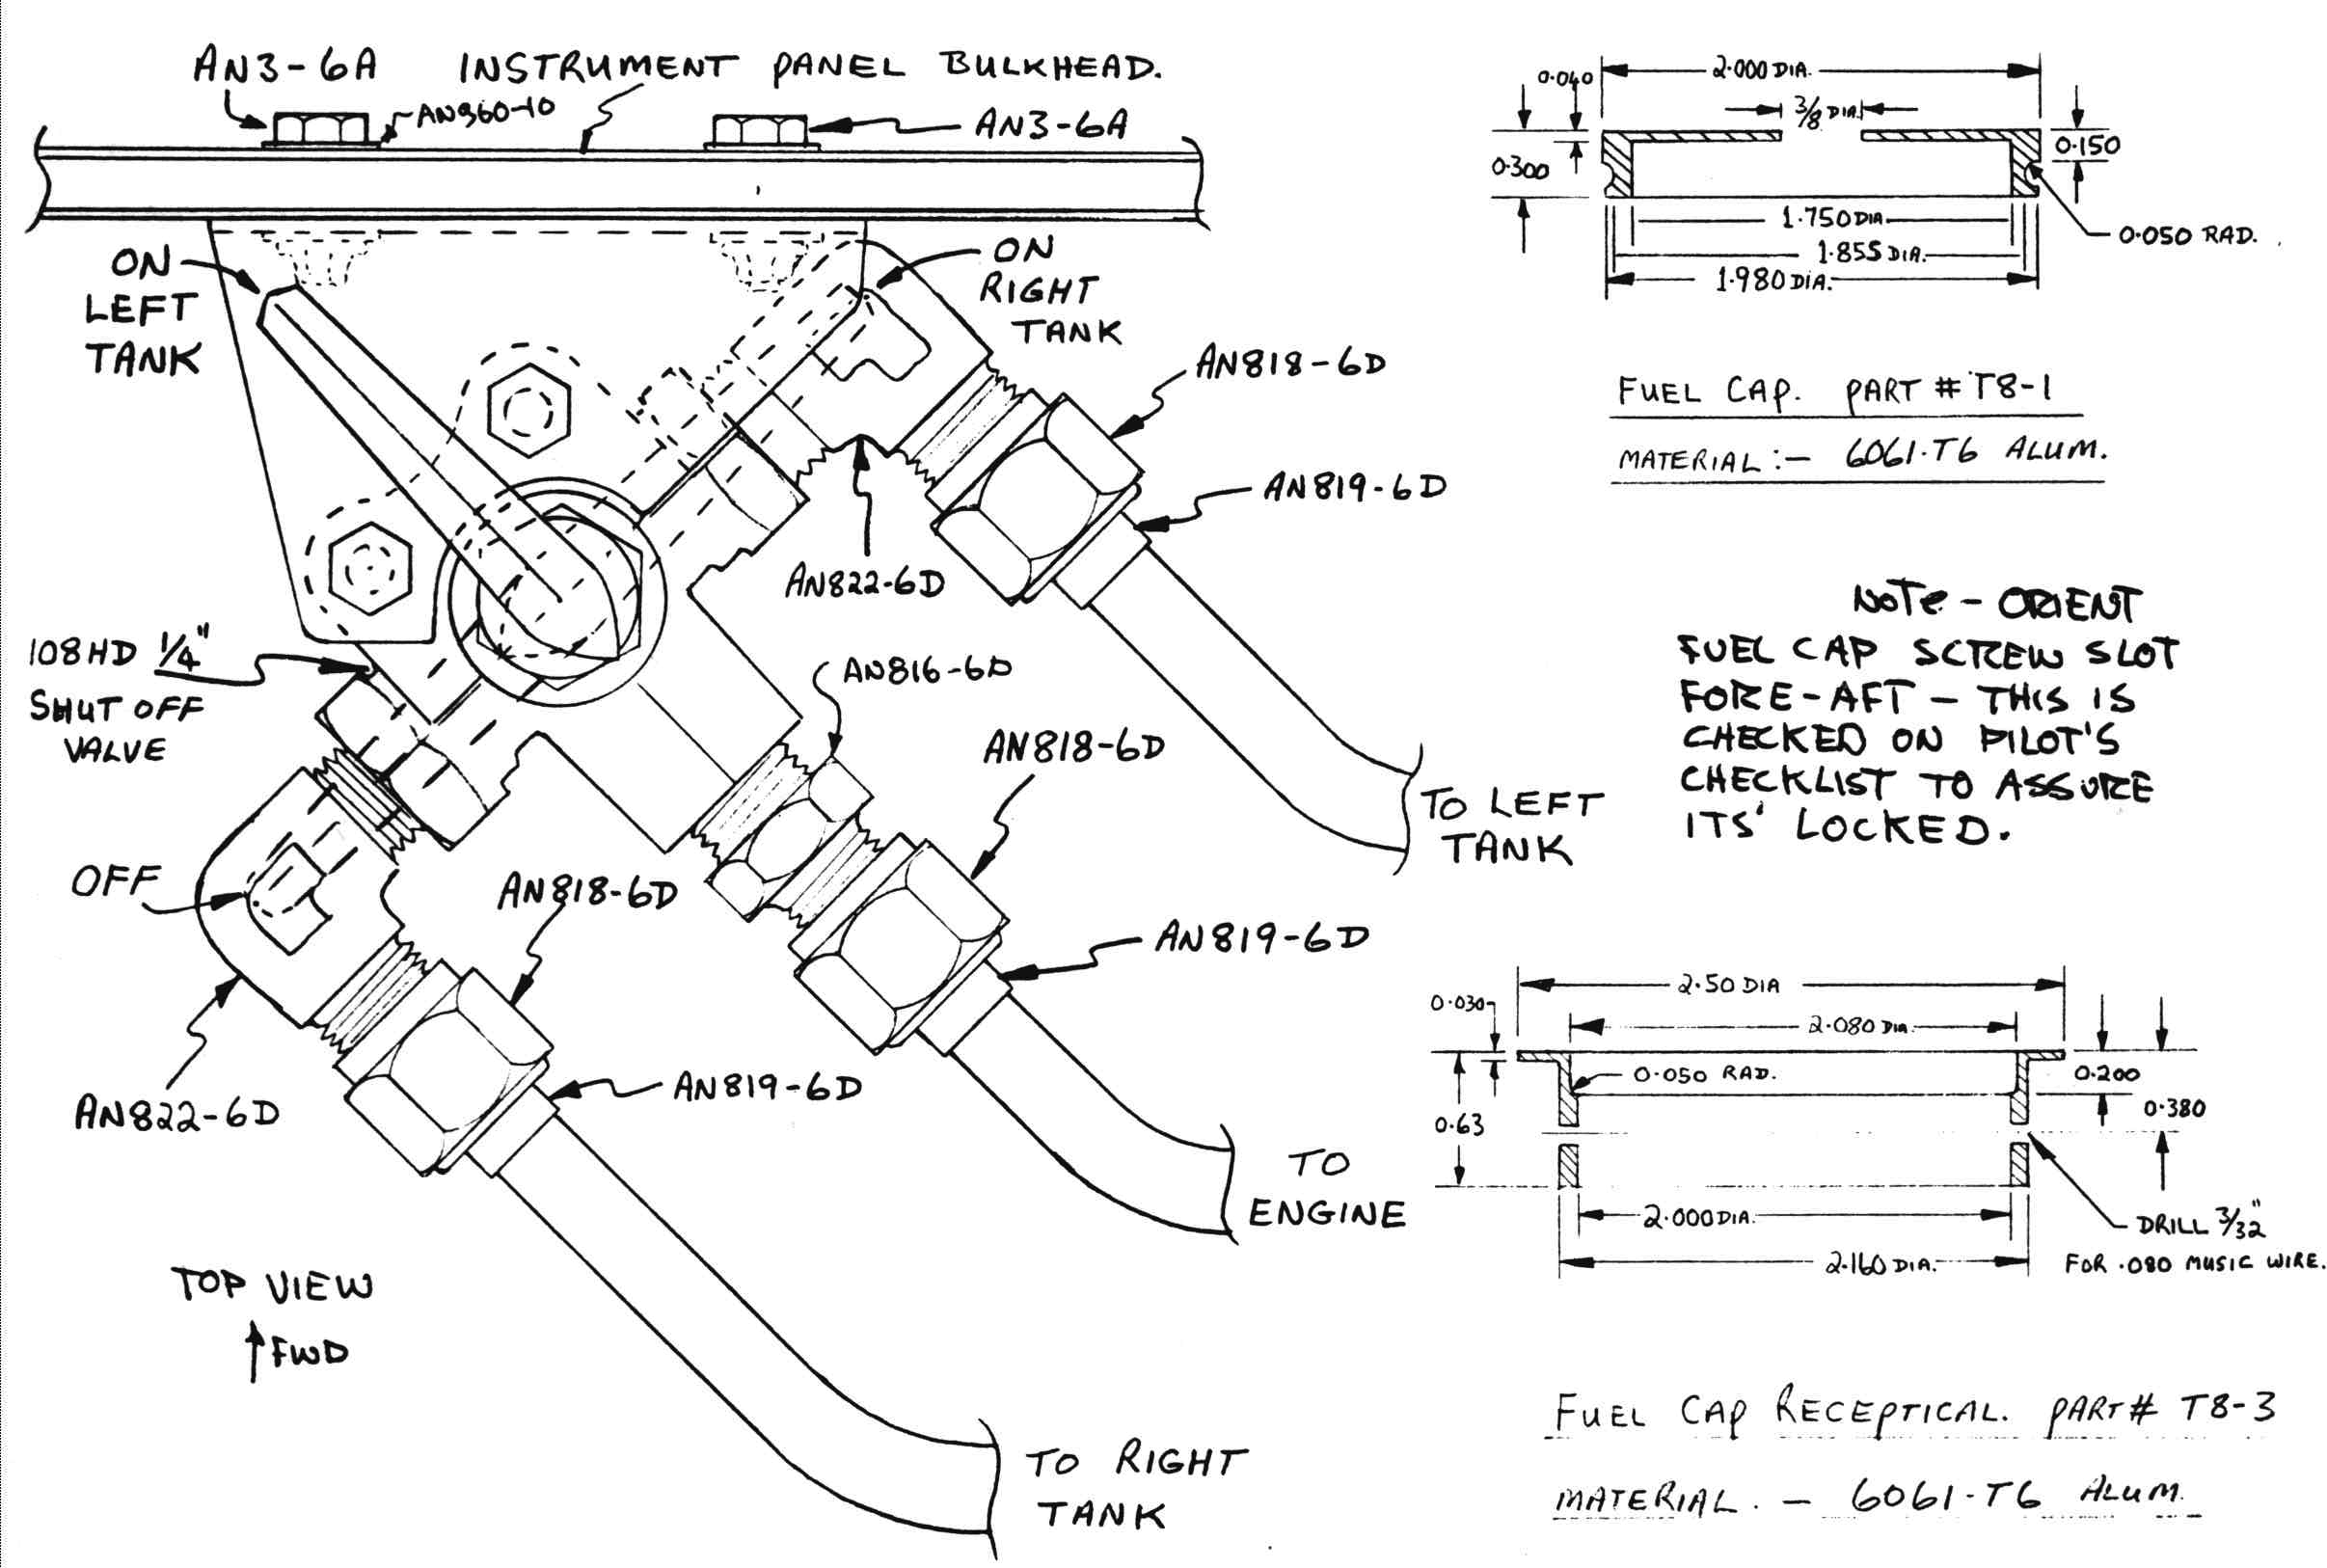 AN3-6A
INSTRUMENT PANEL BULKHEAD.
AN960-10
AN3-6A
ON
LEFT
TANK
ON
RIGHT
TANK
AN818-6D
AN819-6D
AN822-6D
108HD 1/4"
SHUT OFF
VALVE
AN816-6D
AN818-6D
TO LEFT
TANK
OFF
AN818-6D
AN819-6D
AN822-6D
AN819-6D
TO
ENGINE
TOP VIEW
FWD
TO RIGHT
TANK
2.000 DIA.
0.040
3/8 DIA.
0.300
0.150
1.750 DIA.
1.855 DIA.
1.980 DIA.
0.050 RAD.
FUEL CAP. PART # T8-1
MATERIAL :- 6061-T6 ALUM.
NOTE - ORIENT
FUEL CAP SCREW SLOT
FORE-AFT - THIS IS
CHECKED ON PILOT'S
CHECKLIST TO ASSURE
ITS' LOCKED.
2.50 DIA
0.030
2.080 DIA.
0.050 RAD.
0.200
0.380
0.63
2.000 DIA.
2.160 DIA.
DRILL 3/32"
FOR .080 MUSIC WIRE.
FUEL CAP RECEPTICAL. PART# T8-3
MATERIAL. - 6061-T6 ALUM.